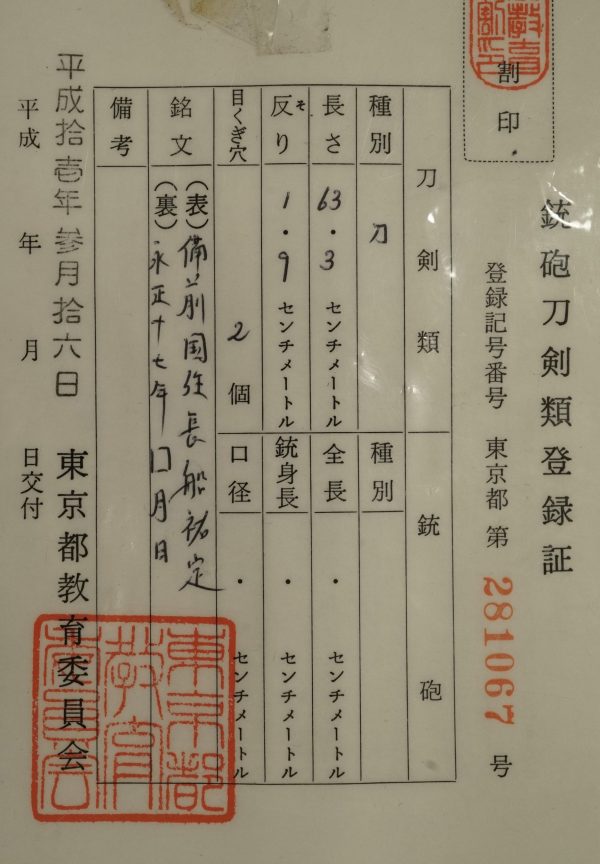 教育
割印
割印
銃砲刀剣類登録証
登録記号番号 東京都 第 281067 号
刀剣類
銃砲
種別 刀
種別
長さ 63.3 センチメートル
全長 . センチメートル
反り そ 1.9 センチメートル
銃身長 . センチメートル
目くぎ穴 2 個
口径 . センチメートル
銘文 (表) 備前国住長船祐定
(裏) 永正十七年 月日
備考
平成拾壱年参月拾六日
平成 年 月 日交付
東京都教育委員会
東京都
教育
委員会